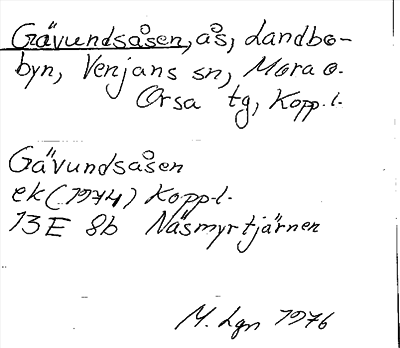 Gävundsåsen, ås, Landbo-
byn, Venjans sn, Mora o.
Orsa tg, Kopp.l.
Gävundsåsen
ek (1974) Kopp.l.
13E 8b Näsmyrtjärnen
M. Lgn 1976